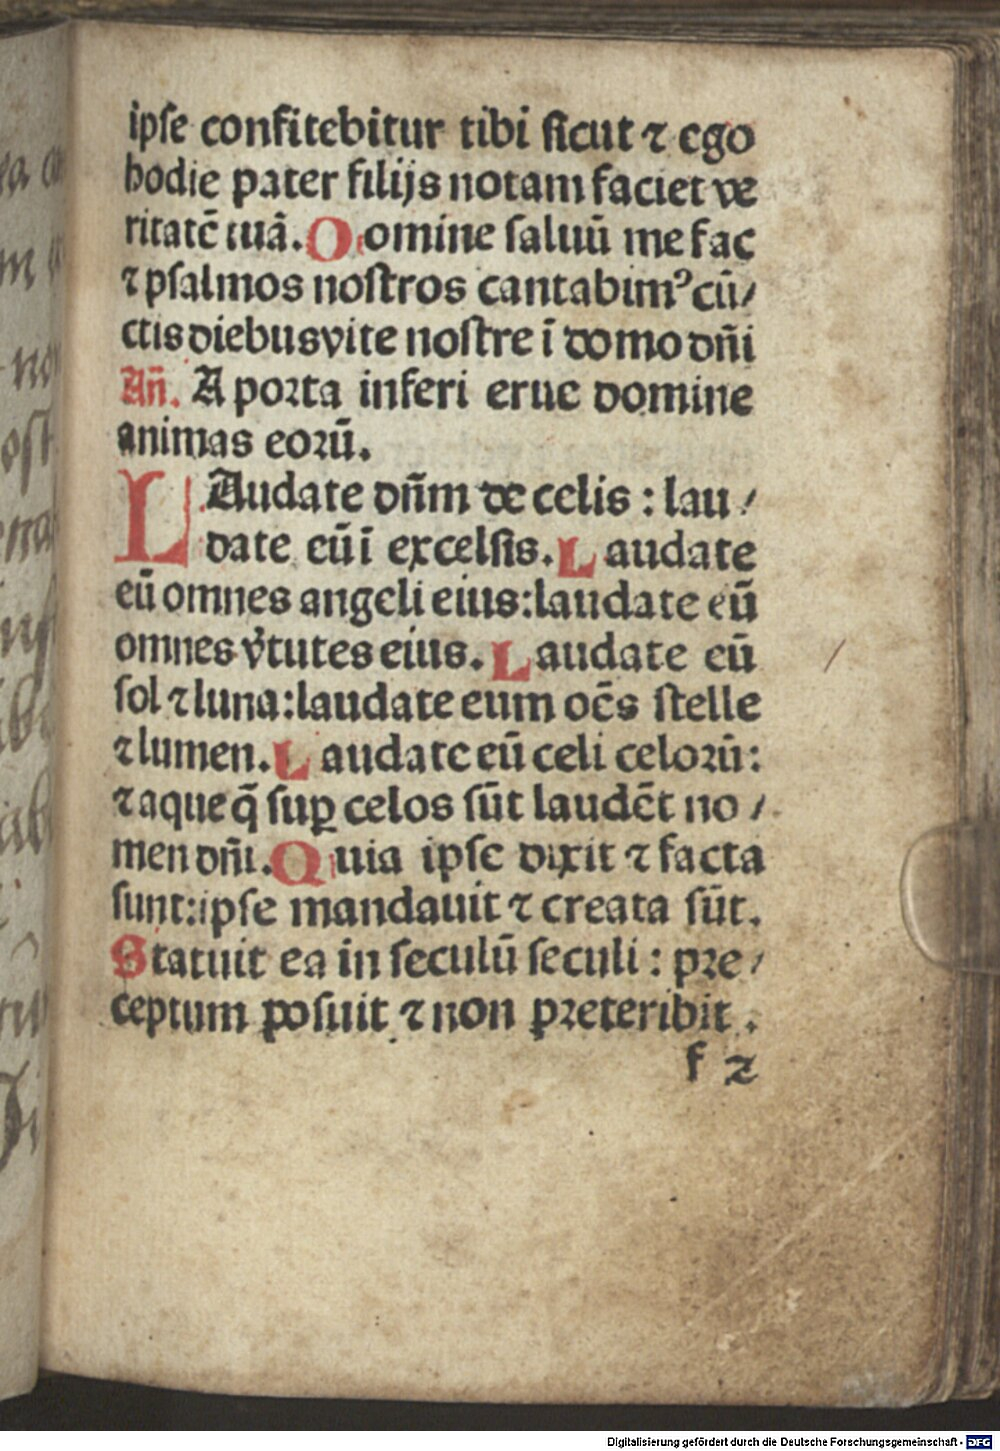 ipſe confitebitur tibi ſicut ⁊ ego
hodie pater filijs notam faciet ve
ritatē tuā. Domine ſaluū me fac
⁊ pſalmos noſtros cantabimꝰ cū/
ctis diebus vite noſtre ī domo dn̄i
An̄. A porta inferi erue domine
animas eorū.
LAudate dn̄m de celis : lau/
date eū ī excelſis. Laudate
eū omnes angeli eius: laudate eū
omnes v̓tutes eius. Laudate eū
ſol ⁊ luna: laudate eum oēs ſtelle
⁊ lumen. Laudate eū celi celorū:
⁊ aque q̄ ſuꝑ celos ſūt laudēt no/
men dn̄i. Quia ipſe dixit ⁊ facta
ſunt: ipſe mandauit ⁊ creata ſūt.
Statuit ea in ſeculū ſeculi : pre/
ceptum poſuit ⁊ non preteribit.
f 2
Digitalisierung gefördert durch die Deutsche Forschungsgemeinschaft - DFG